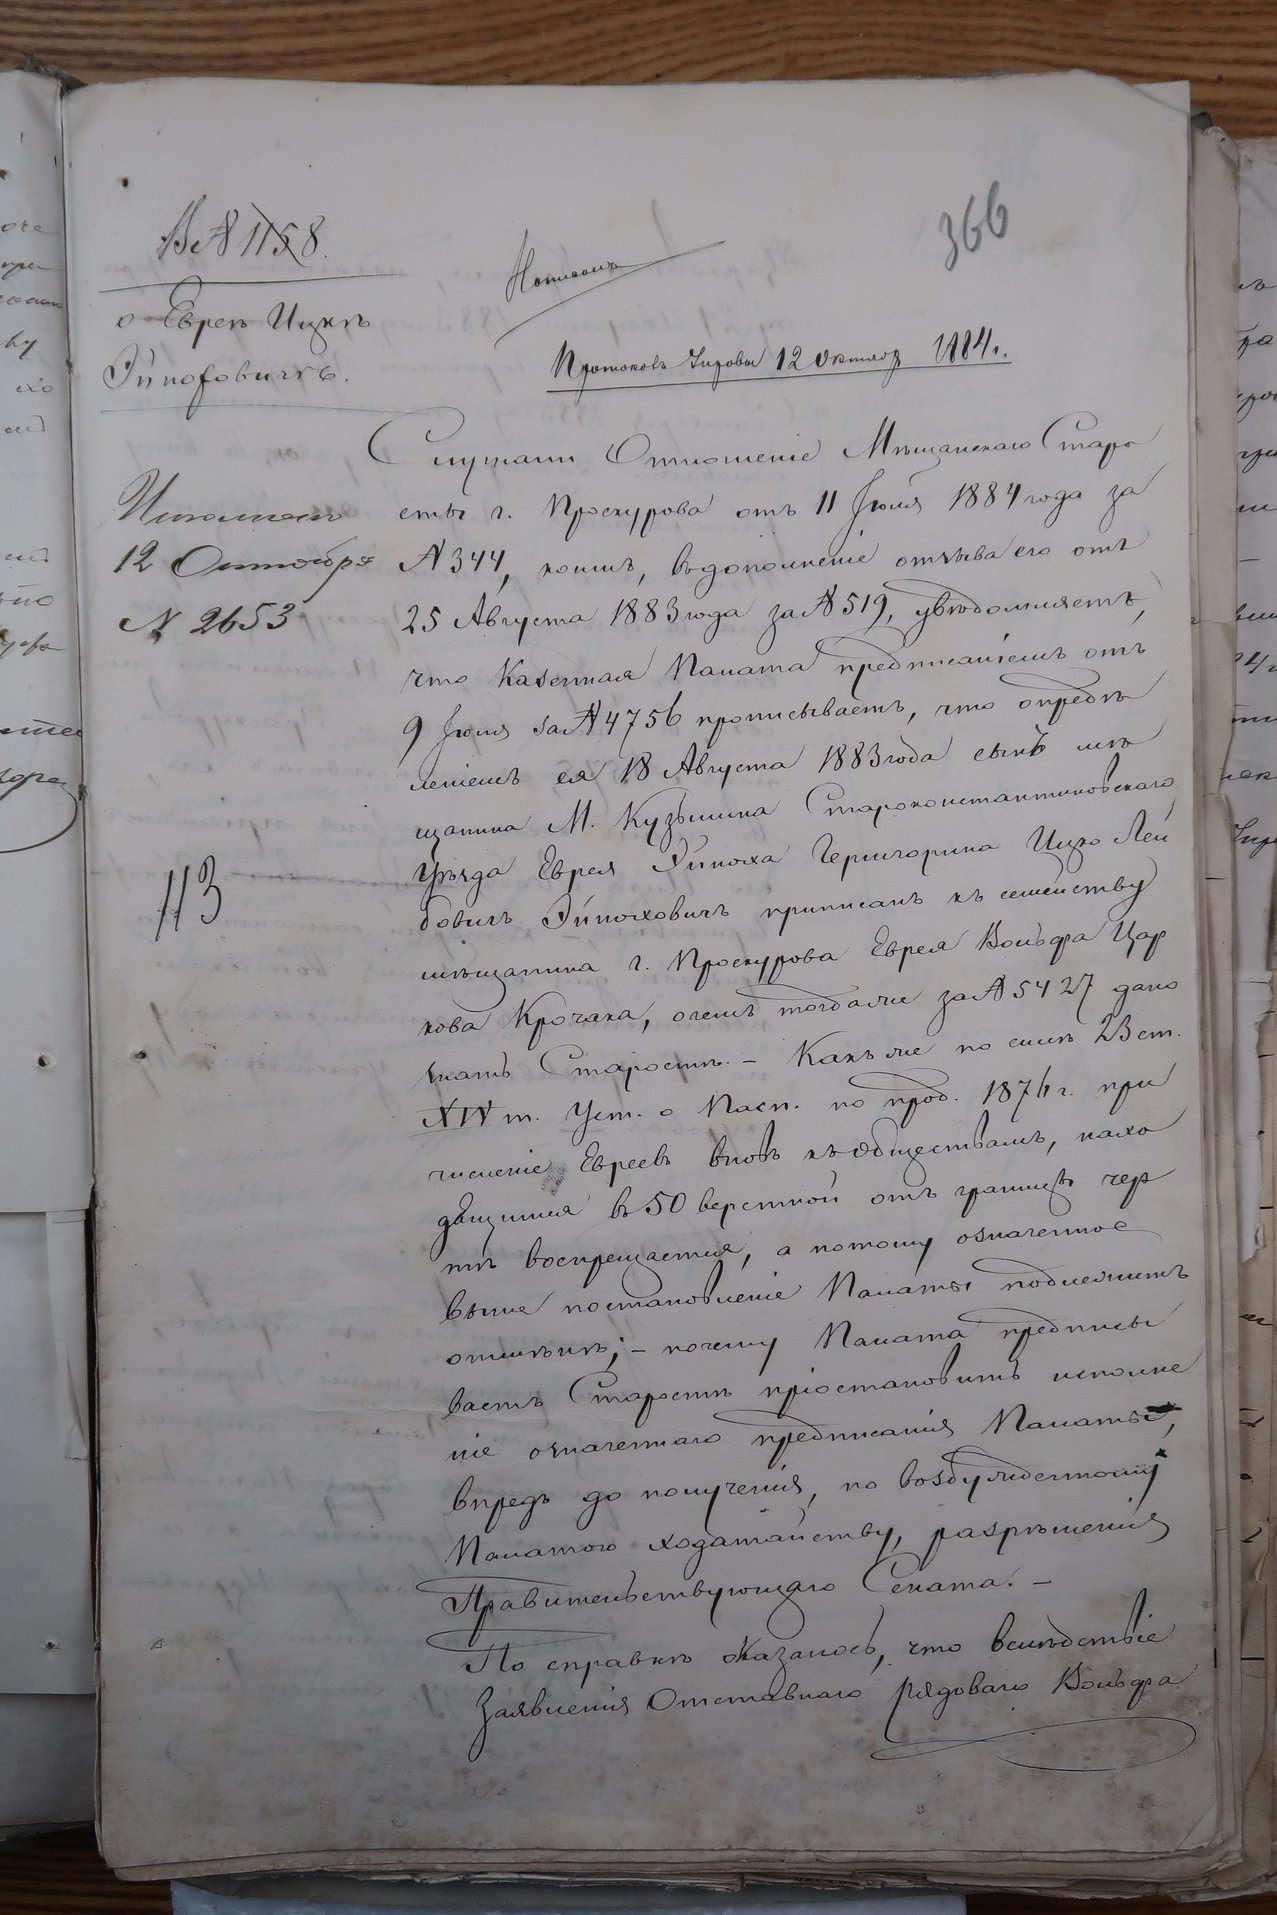 366
В № 1158.
о Евреѣ Ицкѣ
Эйноховичѣ.
Протоколъ Упр 12 Октябр 1884 г.
Исполнен
12 Октября
№ 2653
113
Слушали Отношеніе Мѣщанскаго Старо
сты г. Проскурова отъ 11 Іюля 1884 года за
№ 344, коимъ, въ дополненіе отзыва его отъ
25 Августа 1883 года за № 519, увѣдомляетъ,
что Казенная Палата предписаніемъ отъ
9 Іюля за № 4756 прописываетъ, что опредѣ
леніемъ ея 18 Августа 1883 года сынъ мѣ
щанина М. Кузьмина Староконстантиновскаго
Уѣзда Еврея Эйноха Ицко Лей
бовичъ Эйноховичъ приписанъ къ семейству
мѣщанина г. Проскурова Еврея Вольфа
Крочака, о чемъ тогда же за № 5427 дано
знать Старостѣ. – Какъ же по силѣ 23 ст.
XIV т. Уст. о Пасп. по прод. 1876 г. при
численіе Евреевъ вновь къ обществамъ, нахо
дящимся въ 50 верстной отъ границы чер
тѣ воспрещается, а потому означенное
выше постановленіе Палаты подлежитъ
отмѣнѣ; – почему Палата предписы
ваетъ Старостѣ пріостановить исполне
ніе означеннаго предписанія Палаты,
впредь до полученія, по возбужденному
Палатою ходатайству, разрѣшенія
Правительствующаго Сената. –
По справкѣ оказалось, что вслѣдствіе
Заявленія Отставнаго рядоваго Вольфа